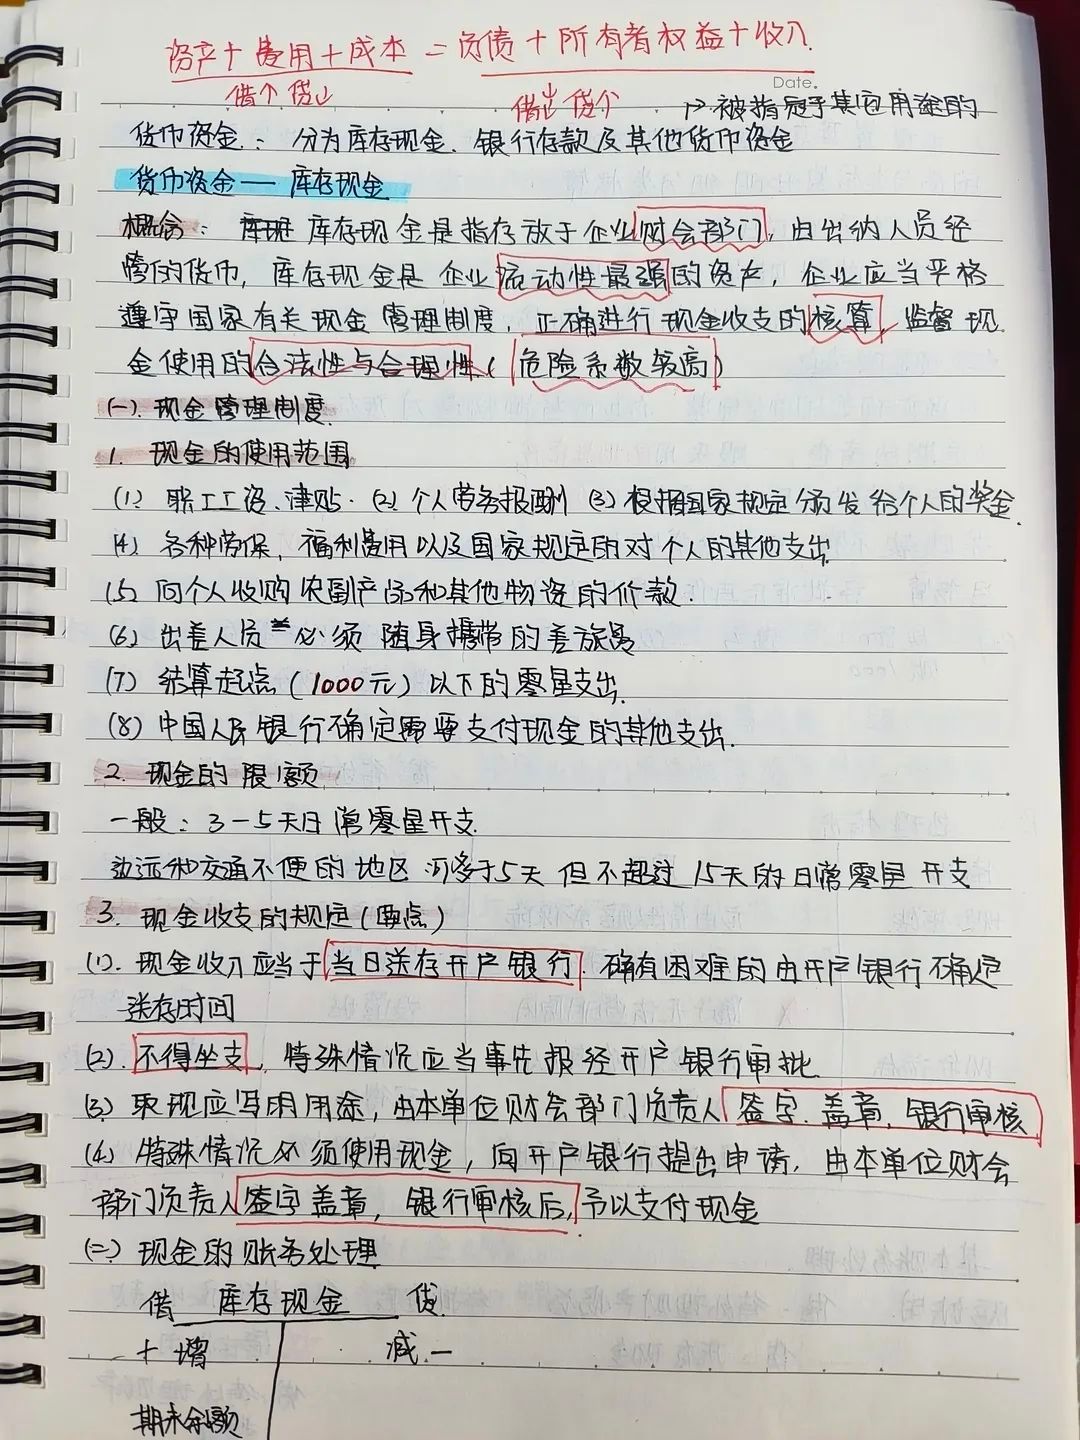 资产+费用+成本=负债+所有者权益+收入
借个贷少
借少贷个
Date.
被指定于其它用途的
货币资金: 分为库存现金、银行存款及其他货币资金
货币资金—库存现金
概念: 库存现金是指存放于企业财会部门,由出纳人员经
管的货币,库存现金是企业流动性最强的资产,企业应当严格
遵守国家有关现金管理制度,正确进行现金收支的核算,监督现
金使用的合法性与合理性(危险系数较高)
(一).现金管理制度
1. 现金的使用范围
(1) 职工工资、津贴.(2) 个人劳务报酬 (3) 根据国家规定颁发给个人的奖金.
(4) 各种劳保,福利费用以及国家规定的对个人的其他支出
(5) 向个人收购农副产品和其他物资的价款.
(6) 出差人员必须随身携带的差旅费
(7) 结算起点(1000元)以下的零星支出.
(8) 中国人民银行确定需要支付现金的其他支出.
2. 现金的限额
一般: 3-5天日常零星开支.
边远和交通不便的地区 可多于5天 但不超过15天的日常零星开支
3. 现金收支的规定(要点)
(1). 现金收入应当于当日送存开户银行,确有困难的由开户银行确定
送存时间
(2). 不得坐支,特殊情况应当事先报经开户银行审批
(3) 取现应写明用途,由本单位财会部门负责人签字.盖章,银行审核
(4) 特殊情况必须使用现金,向开户银行提出申请,由本单位财会
部门负责人签字盖章,银行审核后,予以支付现金
(二) 现金的账务处理
借 库存现金 贷
+增 减-
期末余额